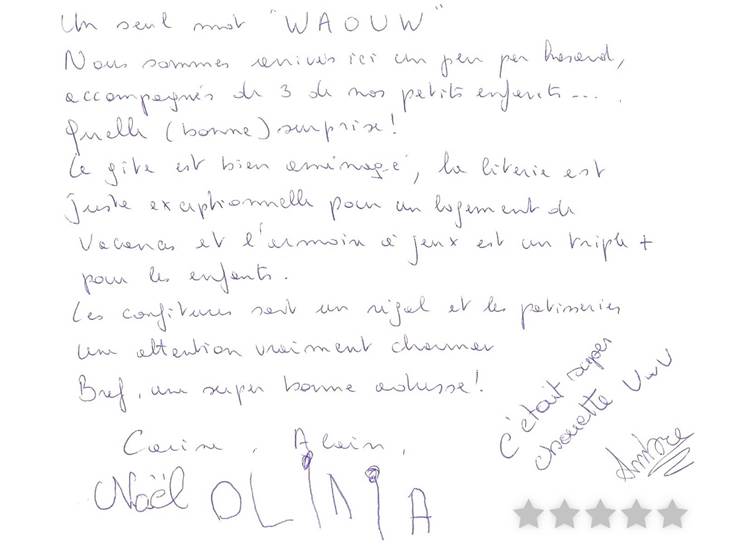 Un seul mot "WAOUW"
Nous sommes arrivés ici un peu par hasard,
accompagnés de 3 de nos petits enfants....
Quelle (bonne) surprise!
Le gîte est bien aménagé, la literie est
juste exceptionnelle pour un logement de
vacances et l'armoire à jeux est un triple +
pour les enfants.
Les confitures sont un régal et les patisseries
une attention vraiment charmer
Bref, une super bonne adresse!
Carine, Alain,
Noël OLiNiA
C'était super
chouette UwU
Ambre